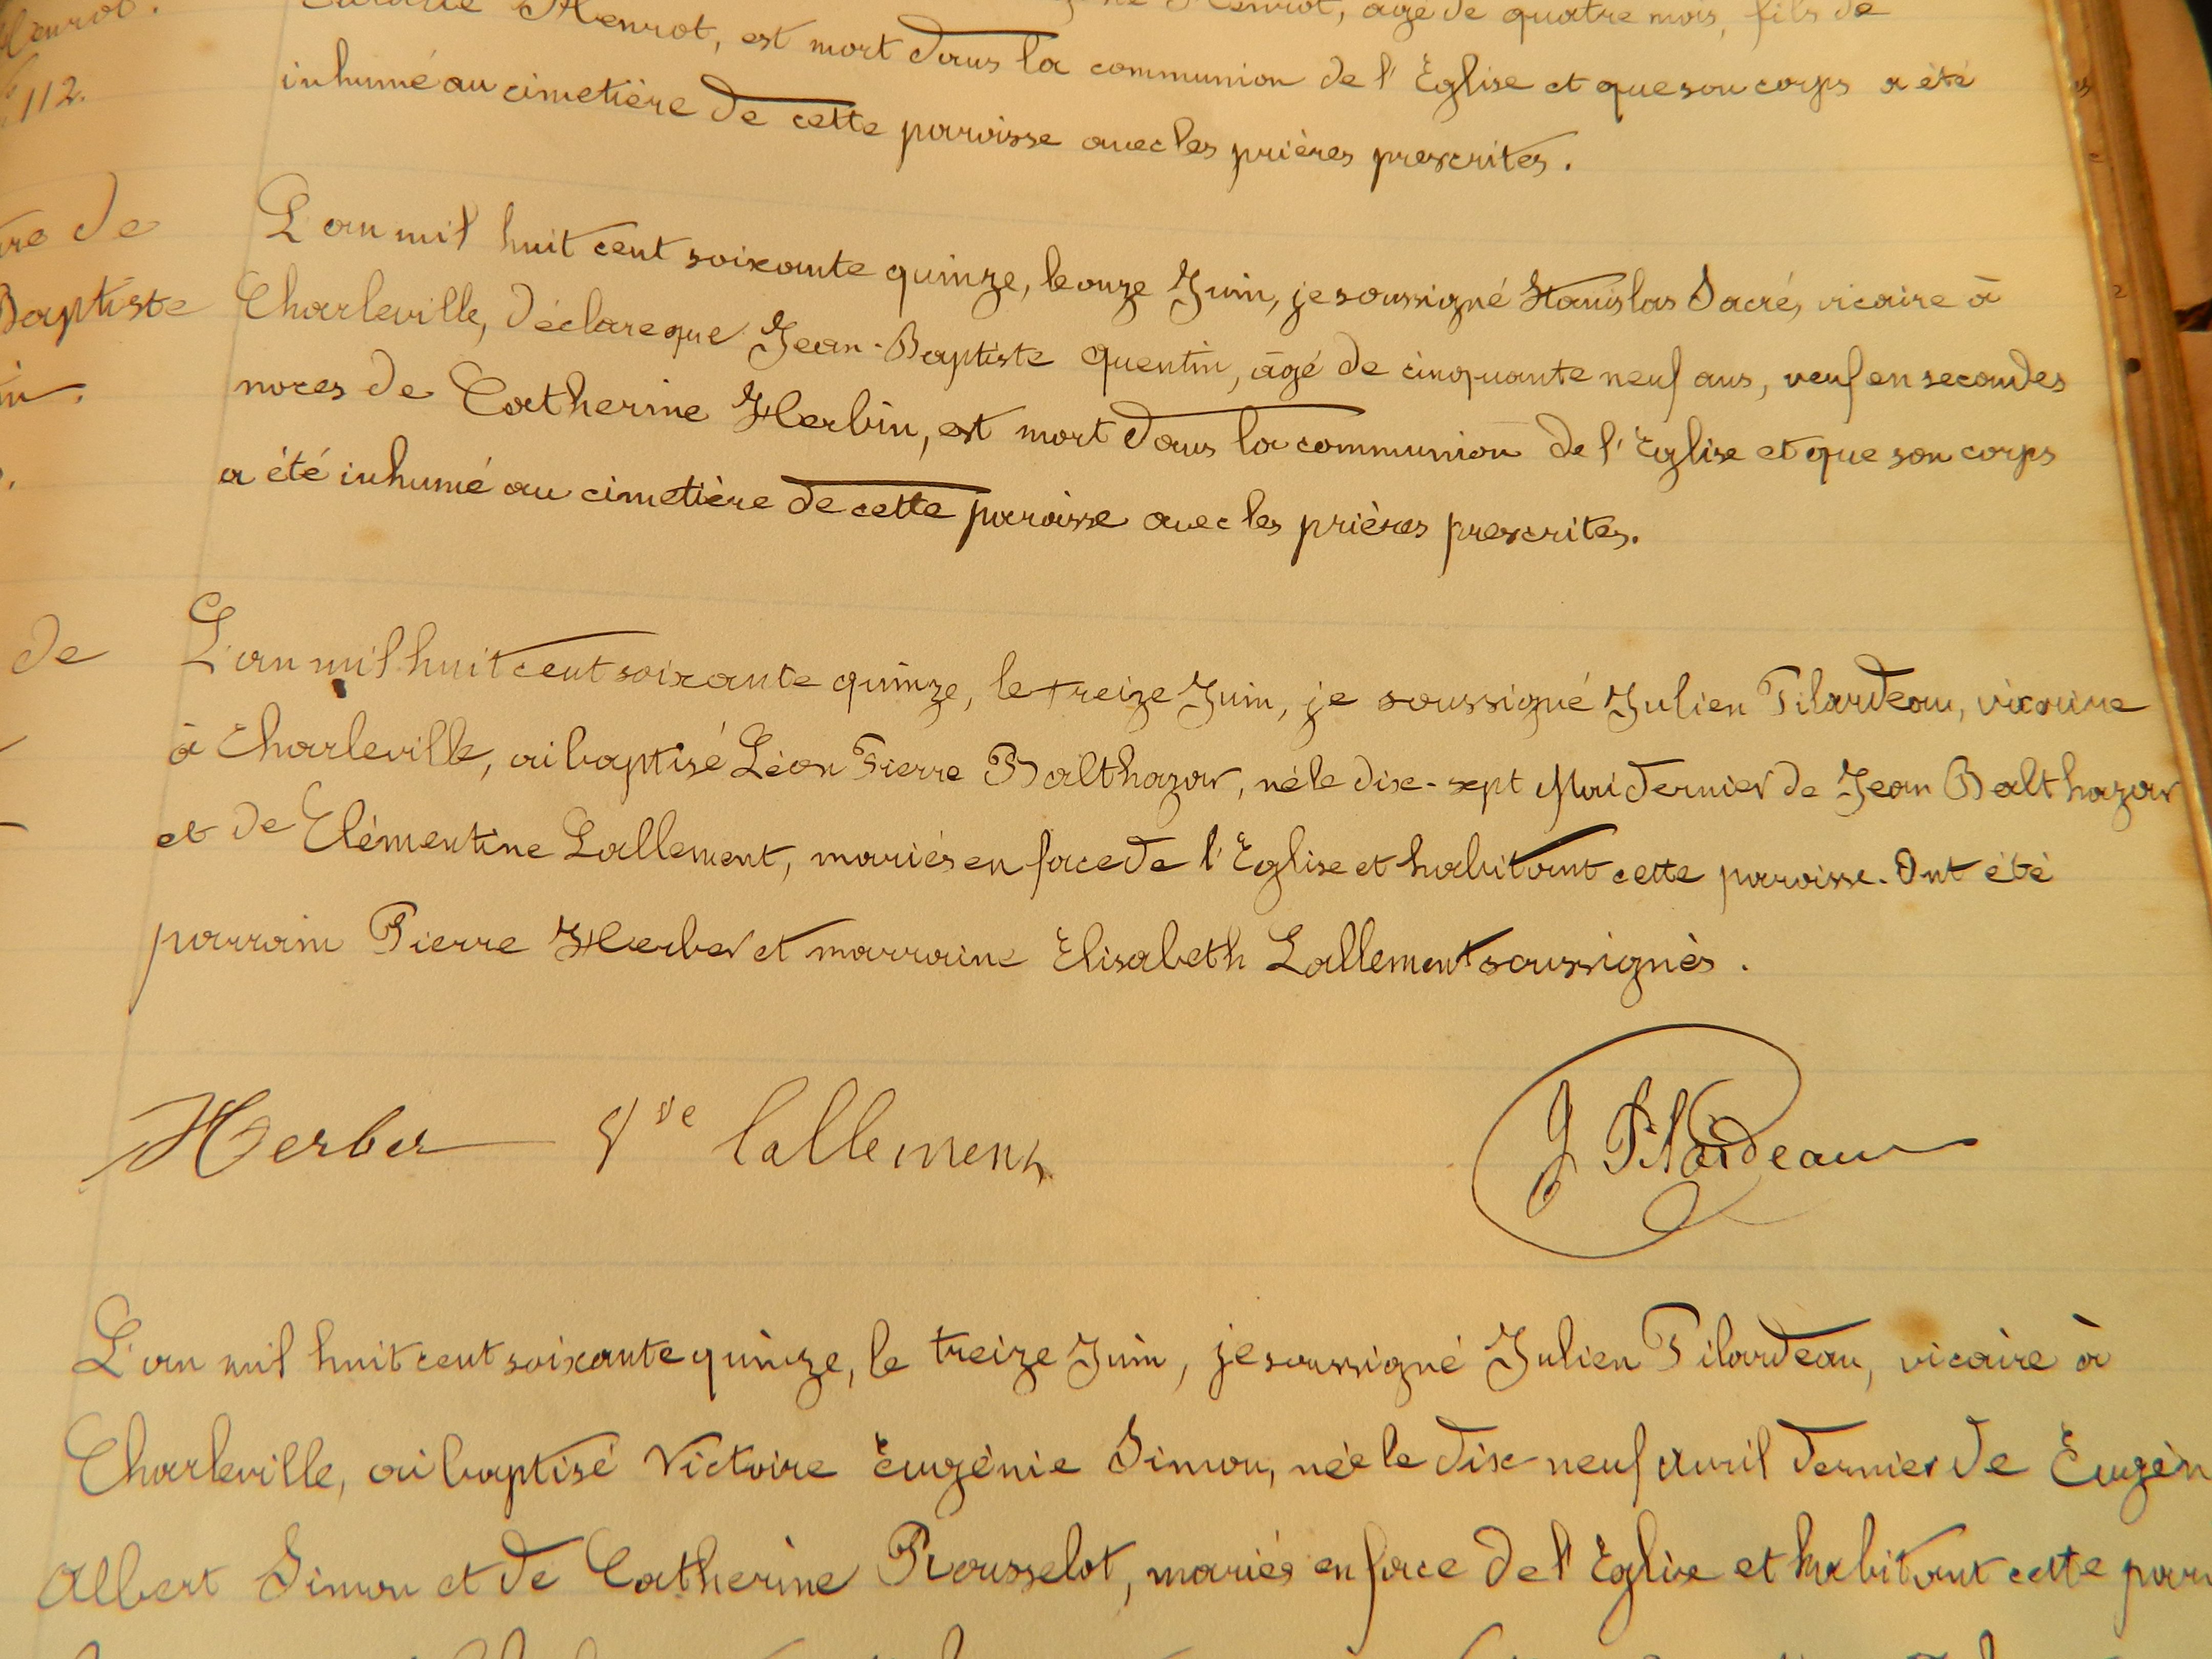 Henrot, âgé de quatre mois, fils de
Henrot.
Henrot, est mort dans la communion de l'Eglise et que son corps a été
112.
inhumé au cimetière de cette paroisse avec les prières prescrites.
de
L'an mil huit cent soixante quinze, le onze Juin, je soussigné Stanislas Sacré, vicaire à
Baptiste
Charleville, déclare que Jean-Baptiste Quentin, âgé de cinquante neuf ans, veuf en secondes
noces de Catherine Herbin, est mort dans la communion de l'Eglise et que son corps
a été inhumé au cimetière de cette paroisse avec les prières prescrites.
de
L'an mil huit cent soixante quinze, le treize Juin, je soussigné Julien Pilardeau, vicaire
à Charleville, ai baptisé Léon Pierre Balthazar, né le dix-sept Mai dernier de Jean Balthazar
et de Elémentine Lallement, mariés en face de l'Eglise et habitant cette paroisse. Ont été
parrain Pierre Herber et marraine Elisabeth Lallement soussignés.
Herber Vve lallement J Pilardeau
L'an mil huit cent soixante quinze, le treize Juin, je soussigné Julien Pilardeau, vicaire à
Charleville, ai baptisé Victoire Eugénie Simon, née le dix neuf avril dernier de Eugèn
Albert Simon et de Catherine Rousselot, mariés en face de l'Eglise et habitant cette paroi